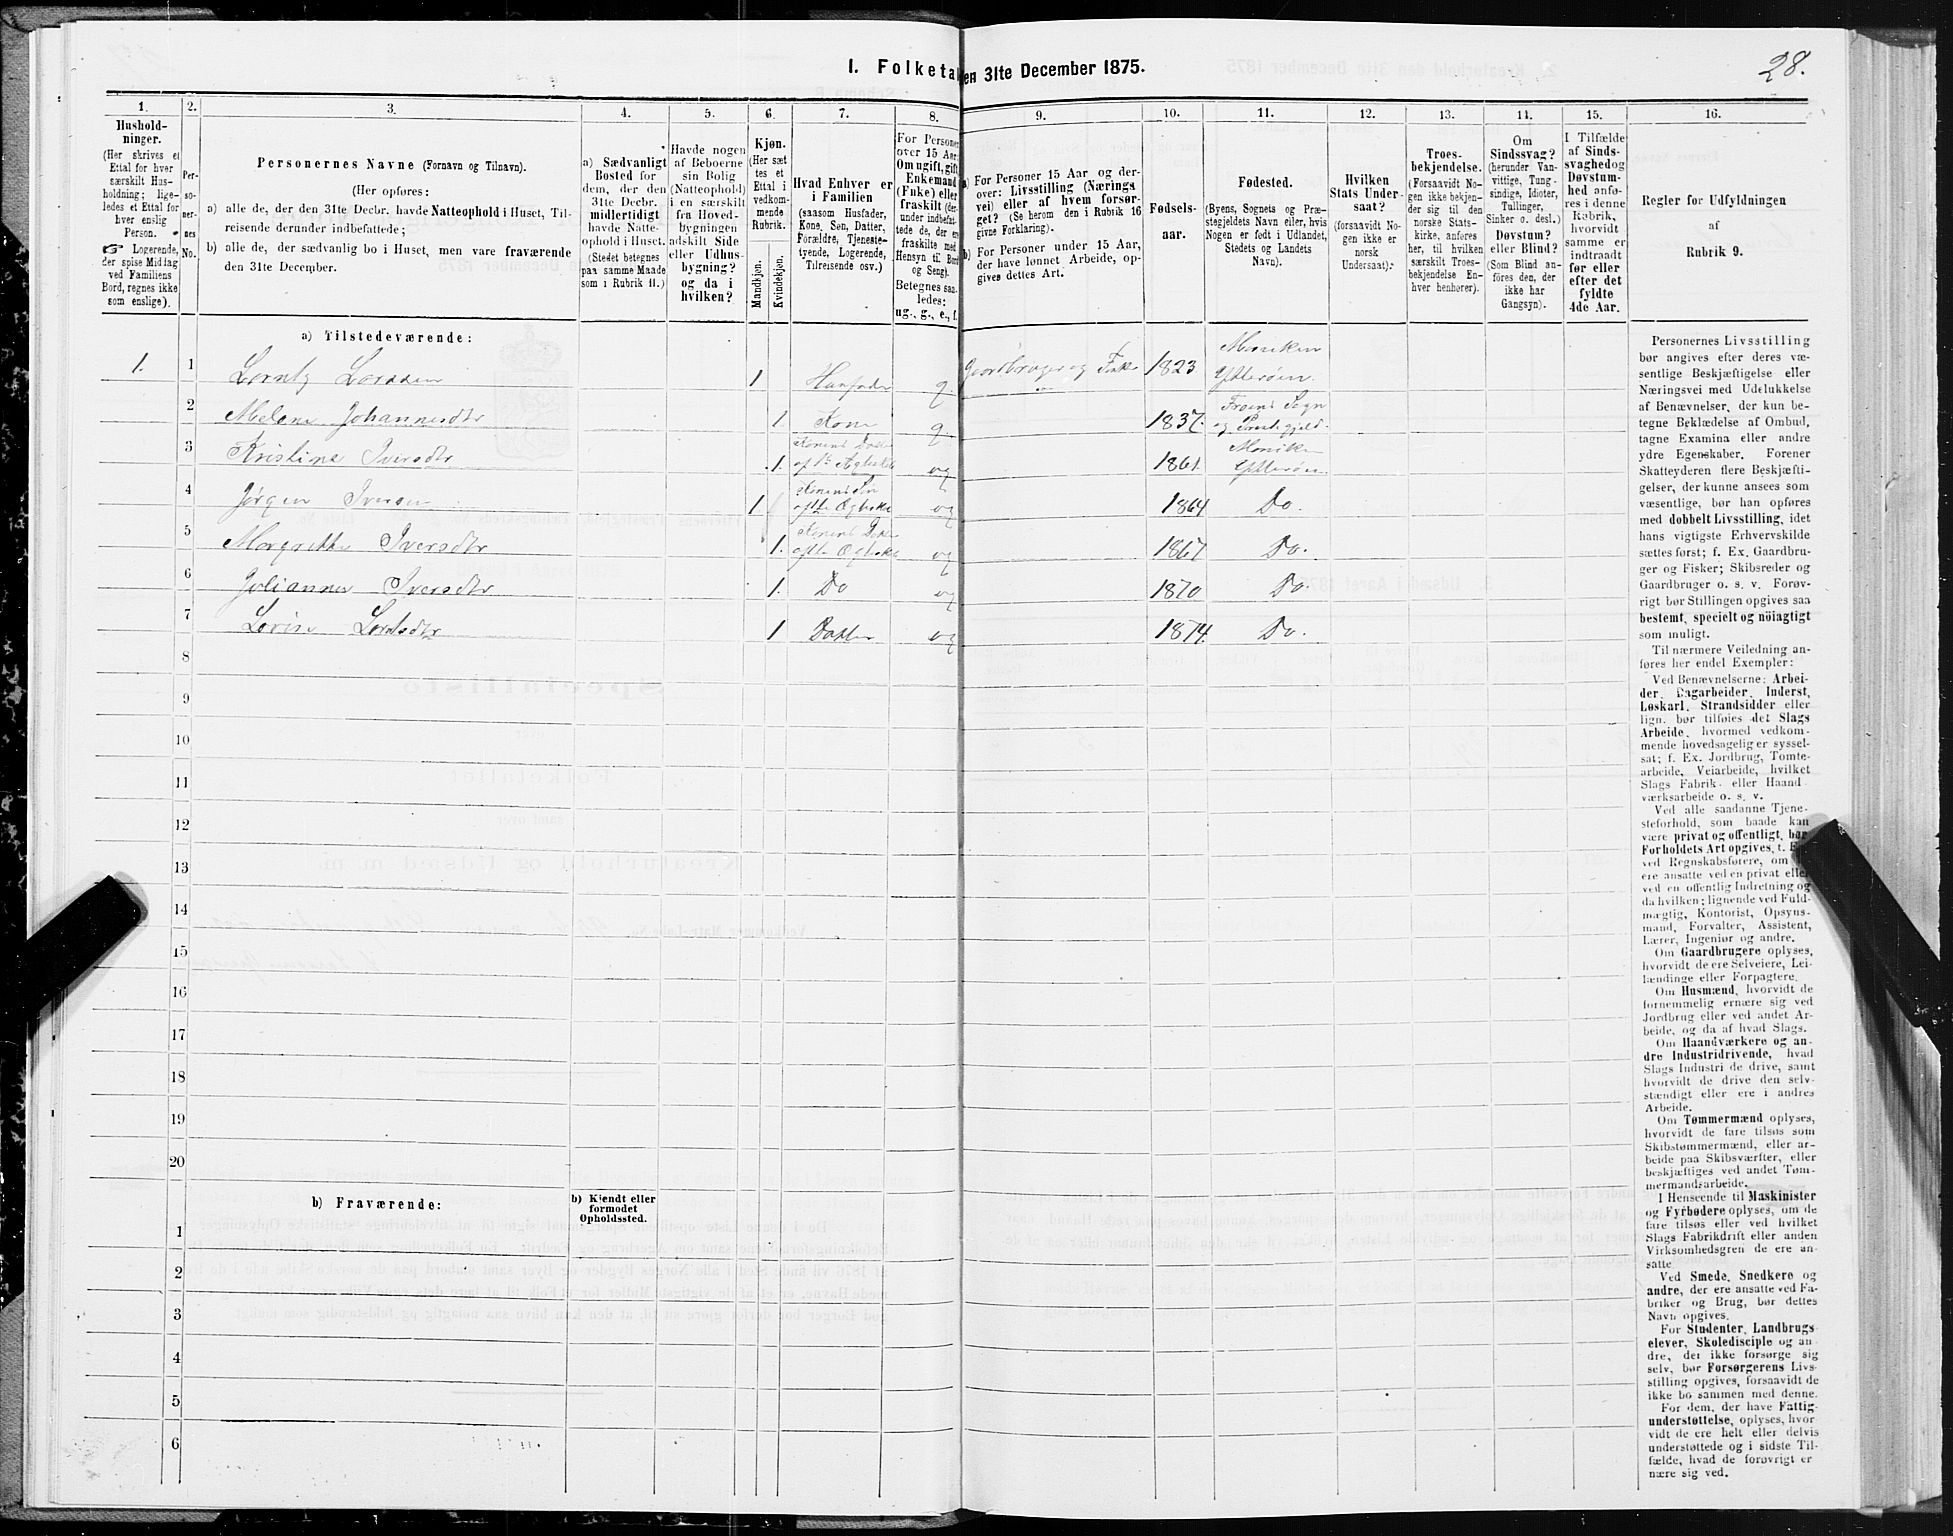 1. Folketa en 31te December 1875.
28.
1.
2.
3.
4.
5.
6.
7.
8.
9.
10.
11.
12.
13.
14.
15.
16.
Hushold-
ninger.
(Her skrives et
Ettal for hver
særskilt Hus-
holdning; lige-
ledes et Ettal for
hver enslig
Person.
☞ Logerende,
der spise Middag
ved Familiens
Bord, regnes ikke
som enslige).
Per-
so-
ner-
nes
No.
Personernes Navne (Fornavn og Tilnavn).
(Her opføres:
a) alle de, der den 31te Decbr. havde Natteophold i Huset, Til-
reisende derunder indbefattede;
b) alle de, der sædvanlig bo i Huset, men vare fraværende
den 31te December.
a) Sædvanligt
Bosted for
dem, der den
31te Decbr.
midlertidigt
havde Natte-
ophold i Huset.
(Stedet betegnes
paa samme Maade
som i Rubrik 11.)
Havde nogen
af Beboerne
sin Bolig
(Natteophold)
i en særskilt
fra Hoved-
bygningen
adskilt Side
eller Udhus-
bygning?
og da i
hvilken?
Kjøn.
(Her sæt
tes et
Ettal i
vedkom-
mende
Rubrik.
Mandkjøn.
Kvindekjøn.
Hvad Enhver er
i Familien
(saasom Husfader,
Kone, Søn, Datter,
Forældre, Tjeneste-
tyende, Logerende,
Tilreisende osv.)
For Persone
over 15 Aar:
Om ugift, gift,
Enkemand
(Enke) eller
fraskilt (der-
under indbefat-
tede de, der ere
fraskilte med
Hensyn til Bord
og Seng).
Betegnes saa-
ledes:
ug., g., e., f.
a) For Personer 15 Aar og der-
over: Livsstilling (Nærings
vei) eller af hvem forsør-
get? (Se herom den i Rubrik 16
givne Forklaring).
b) For Personer under 15 Aar,
der have lønnet Arbeide, op-
gives dettes Art.
Fødsels-
aar.
Fødested.
(Byens, Sognets og Præ-
stegjeldets Navn eller, hvis
Nogen er født i Udlandet,
Stedets og Landets
Navn).
Hvilken
Stats Under-
saat?
(forsaavidt No-
gen ikke er
norsk
Undersaat).
Troes-
bekjendelse.
(Forsaavidt No-
gen ikke bekjen-
der sig til den
norske Stats-
kirke, anføres
her, til hvilken
særskilt Troes-
bekjendelse En-
hver henhører).
Om
Sindssvag?
(herunder Van-
vittige, Tung-
sindige, Idioter,
Tullinger,
Sinker o. desl.)
Døvstum?
eller Blind?
(Som Blind an-
føres den, der
ikke har
Gangsyn).
I Tilfælde
af Sinds-
svaghed og
Døvstum-
hed anfø-
res i denne
Rubrik,
hvorvidt
samme er
indtraadt
før eller
efter det
fyldte
4de Aar.
Regler for Udfyldningen
af
Rubrik 9.
a) Tilstedeværende:
1. 1 Lorntz Larssen 1 Husfader g. Gaardbruger og Fisker 1823 Mosviken Ytterøen.
2 Melena Johannesdtr 1 Kone g. 1837. Froens Sogn og Præstegjeld.
3 Kristine Iversdtr 1. Konens Datter af 1ste Ægteskab ug 1861. Mosviken Ytterøen
4 Jørgen Iversen 1 Konens Søn ug 1864 Do.
5 Margrethe Iversdtr 1. Konens Datter ug 1867 Do.
6 Julianna Iversdtr 1. Do ug 1870 Do.
7 Lovise Lorntsdtr 1 Datter ug 1874. Do.
8
9
10
11
12
13
14
15
16
17
18
19
20
b) Fraværende:
b) Kjendt eller
formodet
Opholdssted.
1
2
3
4
5
6
Personernes Livsstilling
bør angives efter deres væ-
sentlige Beskjæftigelse eller
Næringsvei med Udelukkelse
af Benævnelser, der kun be-
tegne Beklædelse af Ombud,
tagne Examina eller andre
ydre Egenskaber. Forener
Skatteyderen flere Beskjæfti-
gelser, der kunne ansees som
væsentlige, bør han opføres
med dobbelt Livsstilling, idet
hans vigtigste Erhvervskilde
sættes først; f. Ex. Gaardbru-
ger og Fisker; Skibsreder og
Gaardbruger o. s. v. Forøv-
rigt bør Stillingen opgives saa
bestemt, specielt og nöiagtigt
som muligt.
Til nærmere Veiledning an-
føres her endel Exempler:
Ved Benævnelserne: Arbei-
der, Dagarbeider, Inderst,
Løskarl, Strandsidder eller
lign. bør tilføies det Slags
Arbeide, hvormed vedkom-
mende hovedsagelig er syssel-
sat; f. Ex. Jordbrug, Tomte-
arbeide, Veiarbeide, hvilket
Slags Fabrik- eller Haand
værksarbeide o. s. v.
Ved alle saadanne Tjene-
steforhold, som baade kan
være privat og offentligt, bør
Forholdets Art opgives, f. E
ved Regnskabsførere, om
ere ansatte ved en privat elle
ved en offentlig Indretning og
da hvilken; lignende ved Fuld-
mægtig, Kontorist, Opsyns-
mand, Forvalter, Assistent,
Lærer, Ingeniør og andre.
Om Gaardbrugere oplyses,
hvorvidt de ere Selveiere, Lei-
lændinge eller Forpagtere.
Om Husmænd, hvorvidt de
fornemmelig ernære sig ved
Jordbrug eller ved andet Ar-
beide, og da af hvad Slags.
Om Haandværkere og an-
dre Industridrivende, hvad
Slags Industri de drive, samt
hvorvidt de drive den selv-
stændigt eller ere i andres
Arbeide.
Om Tømmermænd oplyses,
hvorvidt de fare tilsøs som
Skibstømmermænd, eller ar-
beide paa Skibsværfter, eller
beskjæftiges ved andet Tøm-
mermandsarbeide.
I Henseende til Maskinister
og Fyrbødere oplyses, om de
fare tilsøs eller ved hvilket
Slags Fabrikdrift eller anden
Virksomhedsgren de ere an-
satte.
Ved Smede, Snedkere og
andre, der ere ansatte ved Fa-
briker og Brug, bør dettes
Navn opgives.
For Studenter, Landbrugs
elever, Skoledisciple og an
dre, der ikke forsørge sig
selv, bør Forsørgerens Livs-
stilling opgives, forsaavidt de
ikke bo sammen med denne.
For dem, der have Fattig-
understøttelse, oplyses, hvor-
vidt de ere helt eller delvis
understøttede og i sidste Til-
fælde, hvad de forøvrigt er
nære sig ved.